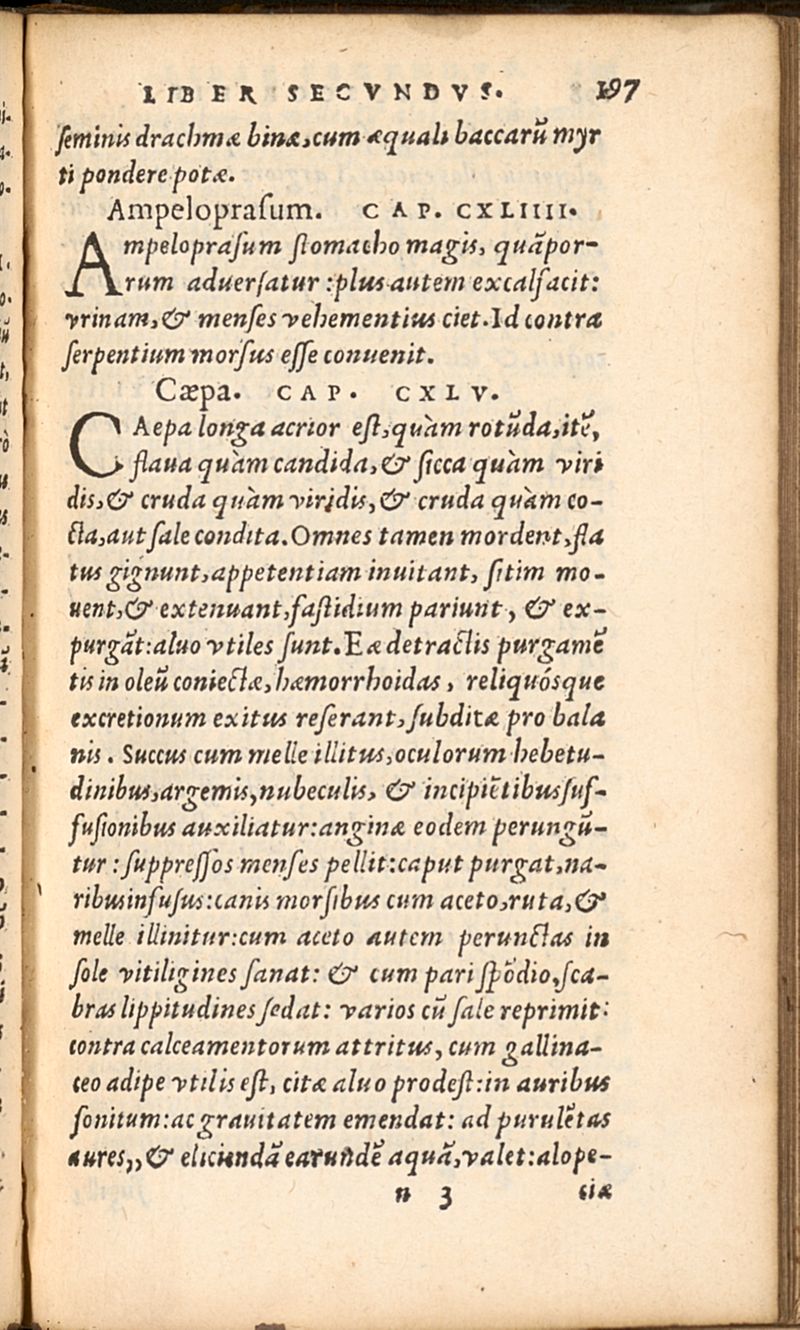 LIBER SECVNDVS. 197
seminis drachmæ binæ, cum æquali baccarũ myr
ti pondere potæ.
Ampeloprasum. CAP. CXLIIII.
Ampeloprasum stomacho magis, quãpor-
rum aduersatur: plus autem excalfacit:
vrinam, & menses vehementius ciet. Id contra
serpentium morsus esse conuenit.
Cæpa. CAP. CXLV.
CAepa longa acrior est, quàm rotũda, itẽ,
flaua quàm candida, & sicca quàm viri
dis, & cruda quàm viridis, & cruda quàm co-
cta, aut sale condita. Omnes tamen mordent, fla
tus gignunt, appetentiam inuitant, sitim mo-
uent, & extenuant, fastidium pariunt, & ex-
purgãt: aluo vtiles sunt. Eæ detractis purgamẽ
tis in oleũ coniectæ, hæmorrhoidas, reliquósque
excretionum exitus reserant, subditæ pro bala
nis. Succus cum melle illitus, oculorum hebetu-
dinibus, argemis, nubeculis, & incipiẽtibus suf-
fusionibus auxiliatur: anginæ eodem perungũ-
tur: suppressos menses pellit: caput purgat, na-
ribus infusus: canis morsibus cum aceto, ruta, &
melle illinitur: cum aceto autem perunctas in
sole vitiligines sanat: & cum pari spõdio, sca-
bras lippitudines sedat: varios cũ sale reprimit:
contra calceamentorum attritus, cum gallina-
ceo adipe vtilis est, citæ aluo prodest: in auribus
sonitum: ac grauitatem emendat: ad purulẽtas
aures,, & eliciundã earundẽ aquã, valet: alope-
n 3 ciæ